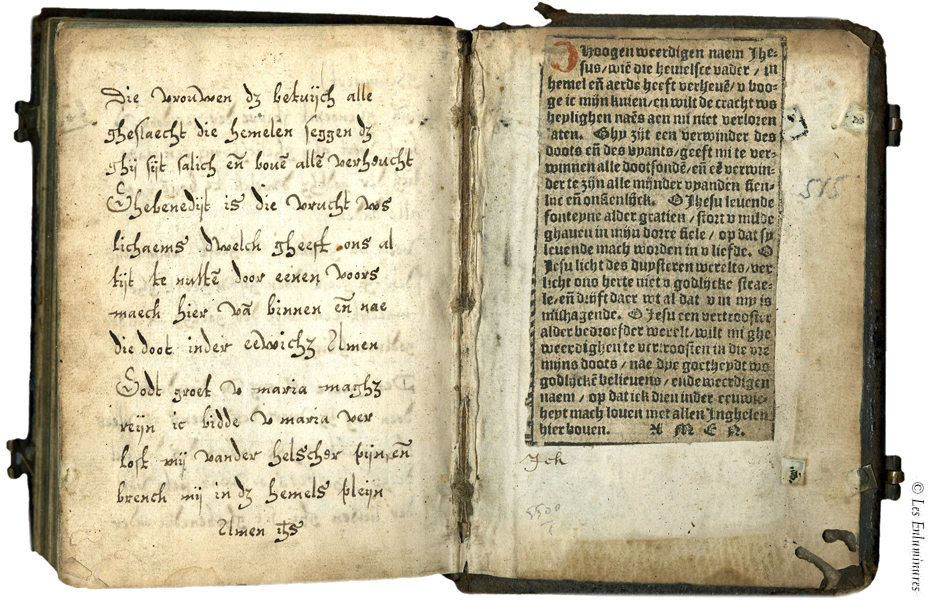 Die vrouwen dz betuijch alle
gheslaecht die hemelen seggen dz
ghij sijt salich eñ bouē allē verheucht
Ghebenedijt is die vrucht ws
lichaems dwelck gheeft ons al
tijt te nuttē door eenen voors
maeck hier vā binnen eñ nae
die doot inder eewichz Amen
Godt groet v maria maghz
reijn ic bidde v maria ver
lost mij vander helscher pijn, eñ
brench mij in dz hemels pleijn
Amen ihs
O Hoogen weerdigen naem Jhe-
sus/wiē die hemelsce vader/in
hemel eñ aerde heeft verheuē/v boo-
ge ic mijn knien/en wilt de cracht ws
heylighen naēs aen mi niet verloren
laten. Ghy zijt een verwinder des
doots eñ des vyants/geeft mi te ver-
winnen alle dootsondē/eñ eē verwin-
der te zijn alle mijnder vyanden sien-
lijc eñ onsienlijck. O Jhesu leuende
fonteyne alder gratien/stort v milde
ghauen in mijn dorre siele/op dat sy
leuende mach worden in v liefde. O
Jesu licht des duysteren werelts/ver
licht ons herte met v godlijcke strae-
le/eñ drijft daer wt al dat v in my is
mishagende. O Jesu een vertrooster
alder bedroefder werelt/wilt mi ghe
weerdighen te vertroosten in die vre
mijns doots/nae dye goetheydt ws
godlijckē belieuens/ende weerdigen
naem/op dat ick dien inder eeuwic-
heyt mach louen met allen Inghelen
hier bouen. A M E N.
515
Jck
5500
© Les Enluminures